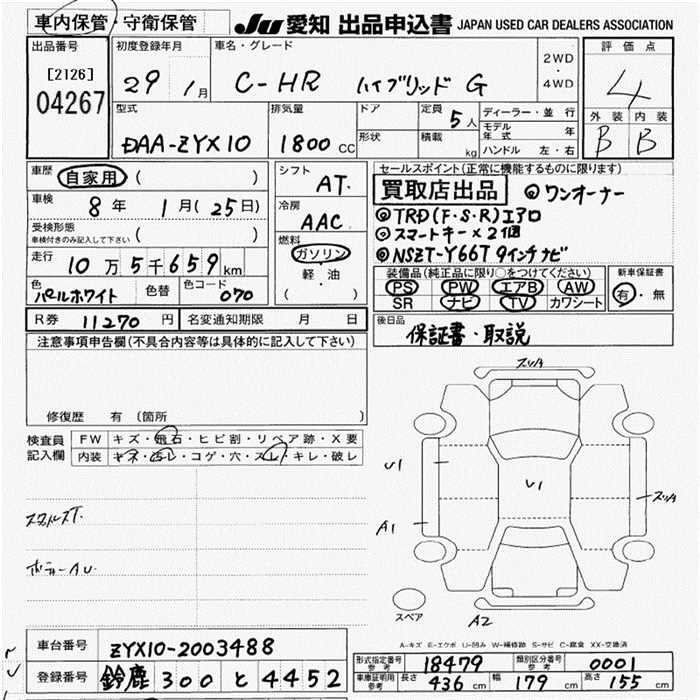 車内保管・守衛保管 JU 愛知 出品申込書 JAPAN USED CAR DEALERS ASSOCIATION
出品番号 初度登録年月 車名・グレード 評価点
[2126] 29 1月 C-HR ハイブリッド G 2WD・4WD 4
04267
型式 排気量 ドア 定員 5人 ディーラー・並行 外装 内装
DAA-ZYX10 1800 CC 形状 積載 kg モデル年式 年 B B
ハンドル 左・右
車歴 自家用 ( ) シフト AT セールスポイント(正常に機能するものに限ります)
車検 8年 1月(25日) 冷房 AAC 買取店出品 ◎ワンオーナー
受検形態 ( ) ◎TRD(F・S・R)エアロ
車検付きのみ記入して下さい 燃料 ガソリン ◎スマートキー×2個
走行 10万5千659km 軽・油 ◎NSZT-Y66T 9インチナビ
( ) 装備品(純正品に限り○をつけてください) 新車保証書
色 パールホワイト 色替 色コード 070 PS PW エアB AW 有・無
SR ナビ TV カワシート
R券 11270円 名変通知期限 月 日 後日品
保証書・取説
注意事項申告欄(不具合内容等は具体的に記入して下さい)
修復歴 有 (箇所 )
検査員 FW キズ・飛石・ヒビ割・リペア跡・X要
記入欄 内装 キズ・汚レ・コゲ・穴・スレ・キレ・破レ
スリキズ
U1 U1 スリキズ
A1
ボデーAU.
スペア A2
A-キズ E-エクボ U-凹み W-補修跡 S-サビ C-腐食 XX-交換済
車台番号 ZYX10-2003488
登録番号 鈴鹿 300 と 4452
形式指定番号 参考 18479 類別区分番号 参考 0001
車庫証明用 参考 長さ 436 cm 幅 179 cm 高さ 155 cm